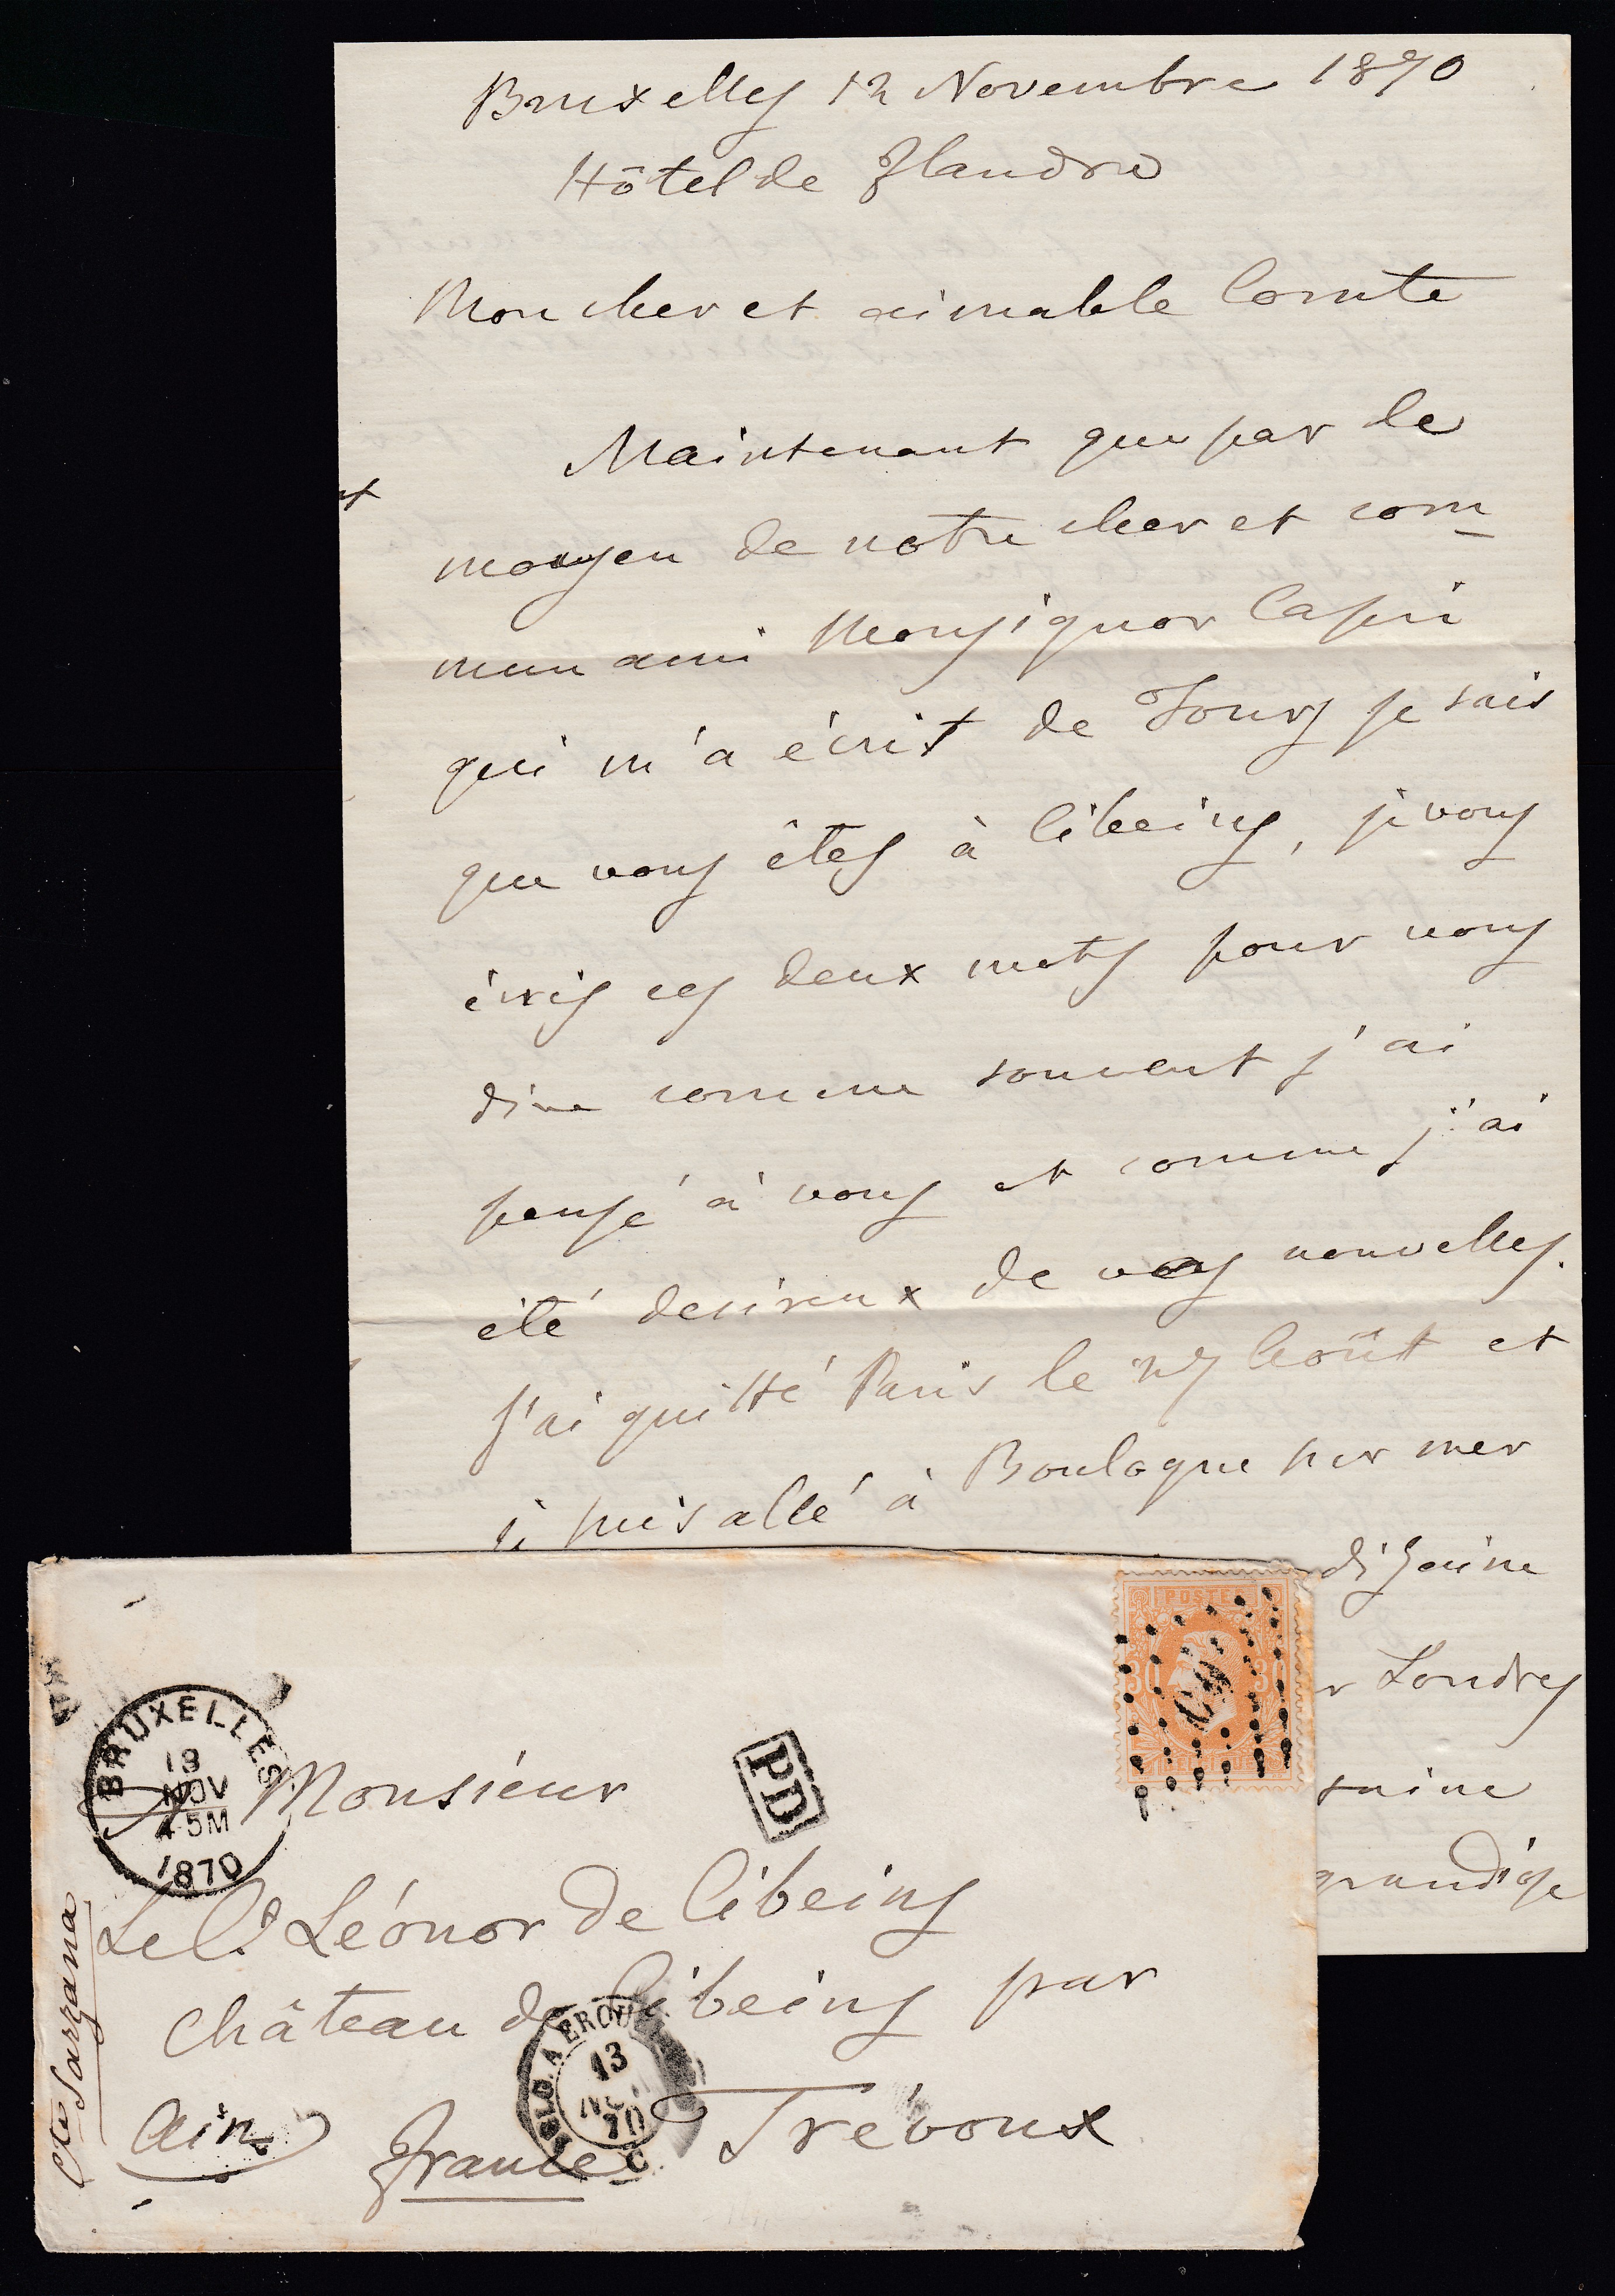 Bruxelles 12 Novembre 1870
Hôtel de Flandre
Mon cher et aimable Comte
Maintenant que par le
moyen de notre cher et com-
mun ami Monsignor Capri
qui m'a écrit de Tours je sais
que vous êtes à Cibeins, je vous
écris ces deux mots pour vous
dire comme souvent j'ai
pensé à vous et comme j'ai
été desireux de vos nouvelles.
J'ai quitté Paris le 27 Août et
je suis allé à Boulogne sur mer
dizaine
Londres
grandiose
POSTES
30 30
BRUXELLES
13
NOV
5M
1870
PD
Monsieur
Le Ct. Léonor de Cibeins
Château de Cibeins par
Ain
France Trévoux
BELG. A ERQU
13
70
C
Cte Sarzana